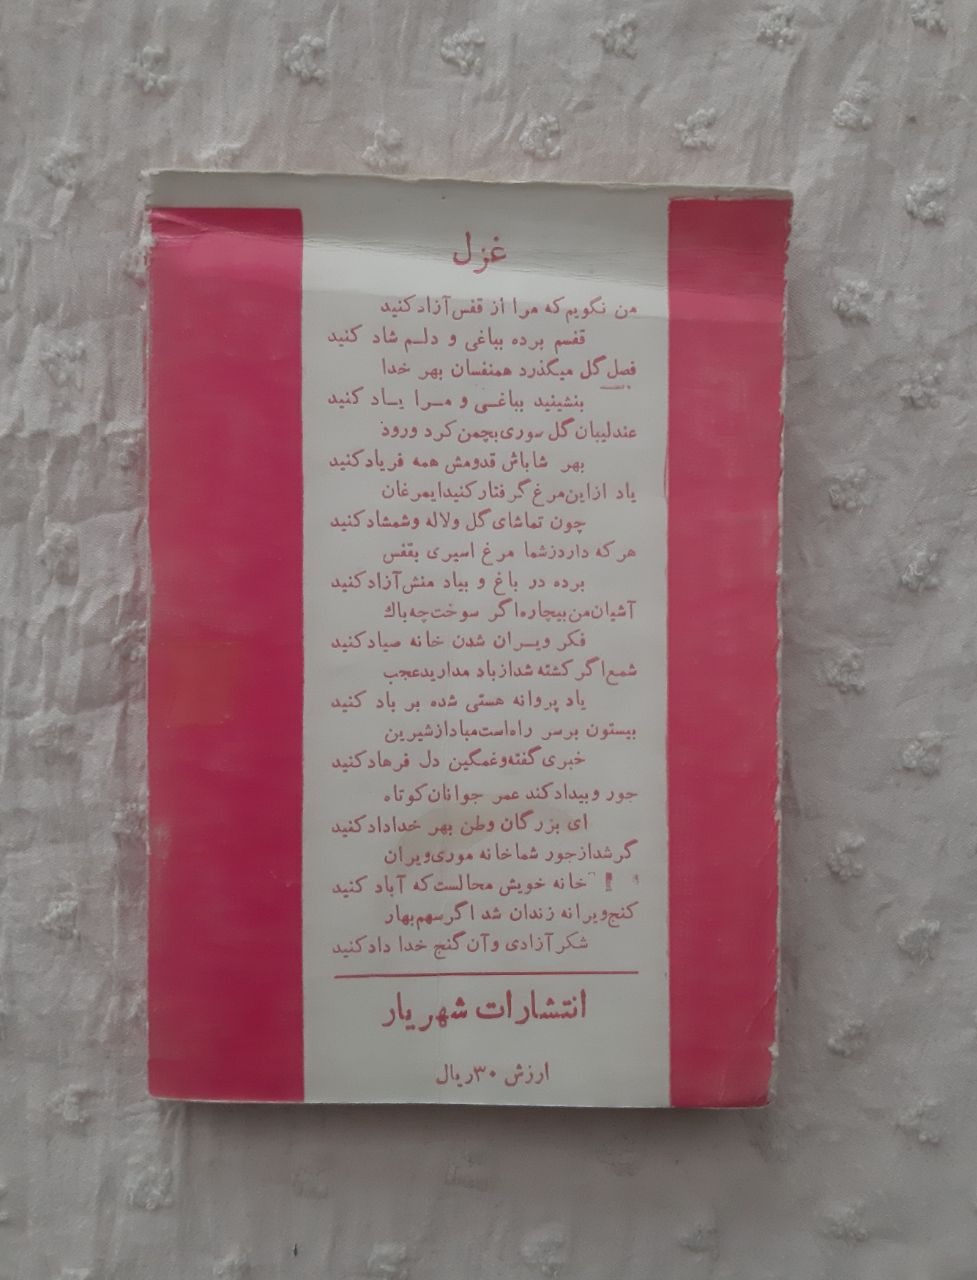 غزل
من نگویم که مرا از قفس آزاد کنید
قفسم برده بباغی و دلم شاد کنید
فصل گل میگذرد همنفسان بهر خدا
بنشینید بباغی و مرا یاد کنید
عندلیبان گل سوری بچمن کرد ورود
بهر شاباش قدومش همه فریاد کنید
یاد ازاین مرغ گرفتار کنید ایمرغان
چون تماشای گل ولاله وشمشاد کنید
هر که دارد زشما مرغ اسیری بقفس
برده در باغ و بیاد منش آزاد کنید
آشیان من بیچاره اگر سوخت چه باك
فکر ویران شدن خانه صیاد کنید
شمع اگر کشته شد از باد مدارید عجب
یاد پروانه هستی شده بر باد کنید
بیستون برسر راه است مباد از شیرین
خبری گفته وغمگین دل فرهاد کنید
جور وبیداد کند عمر جوانان کوتاه
ای بزرگان وطن بهر خدا داد کنید
گر شد از جور شما خانه موری ویران
خانه خویش محالست که آباد کنید
کنج ویرانه زندان شد اگر سهم بهار
شکر آزادی وآن گنج خدا داد کنید
انتشارات شهریار
ارزش ۳۰ ریال